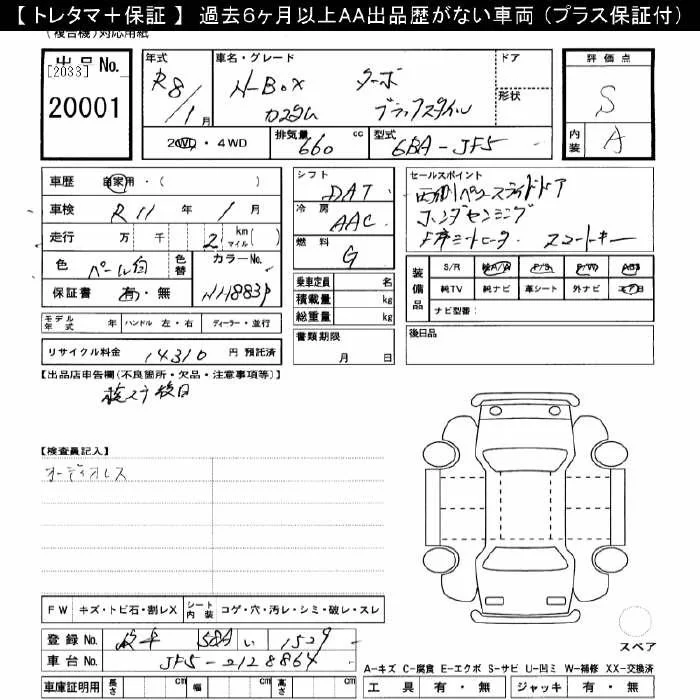 【 トレタマ＋保証 】 過去6ヶ月以上AA出品歴がない車両（プラス保証付）
（複合機）対応用紙
出品No.
[2033]
20001
年式
R8/1月
車名・グレード
N-BOX ターボ
カスタム ブラックスタイル
ドア
形状
評価点
S
内装 A
2WD・4WD
排気量 660 cc
型式 6BA-JF5
車歴 自家用・( )
車検 R11年1月
走行 万 千 2 km マイル( )
色 パール白
色替
カラーNo. NH883P
保証書 有・無
モデル年式 年 ハンドル 左・右 ディーラー・並行
リサイクル料金 14310 円 預託済
シフト DAT
冷房 AAC
燃料 G
乗車定員 名
積載量 kg
総重量 kg
書類期限
月 日
セールスポイント
両側パワースライドドア
ホンダセンシング
F席シートヒータ スマートキー
装備品
S/R A/A P/S P/W ABS
純TV 純ナビ 革シート 外ナビ エアB
ナビ型番：
後日品
【出品店申告欄(不良箇所・欠品・注意事項等)】
検ステ後日
【検査員記入】
オーディオレス
FW キズ・トビ石・割レX シート内装 コゲ・穴・汚レ・シミ・破レ・スレ
登録No. 岐阜 581 い 1529
車台No. JF5-2128864
車庫証明用 長さ cm 幅 cm 高さ cm
スペア
A-キズ C-腐食 E-エクボ S-サビ U-凹ミ W-補修 XX-交換済
工具 有・無 ジャッキ 有・無